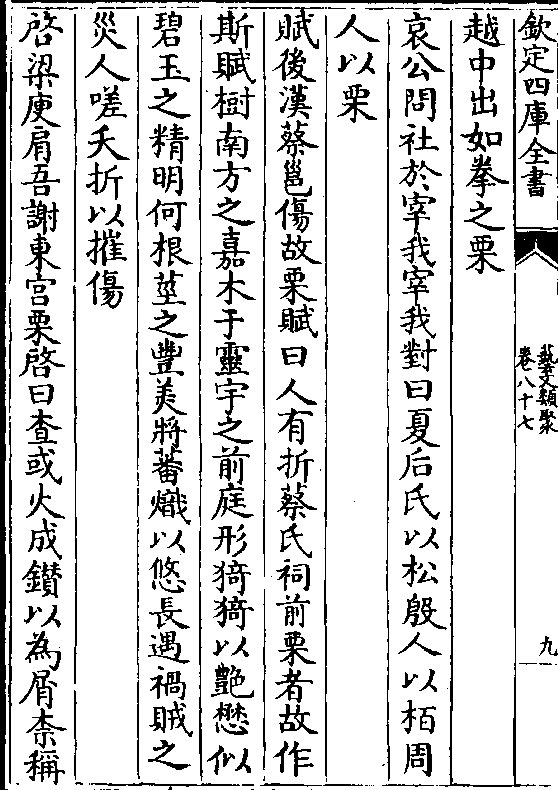 欽定四庫全書
藝文類聚
卷八十七
九
越中出如拳之栗
哀公問社於宰我宰我對曰夏后氏以松殷人以栢周
人以栗
賦後漢蔡邕傷故栗賦曰人有折蔡氏祠前栗者故作
斯賦樹南方之嘉木于靈宇之前庭形猗猗以艶懋似
碧玉之精明何根莖之豐美將蕃熾以悠長遇禍賊之
災人嗟夭折以摧傷
啓梁庾肩吾謝東宮栗啓曰查或火成鑚以為屑柰稱